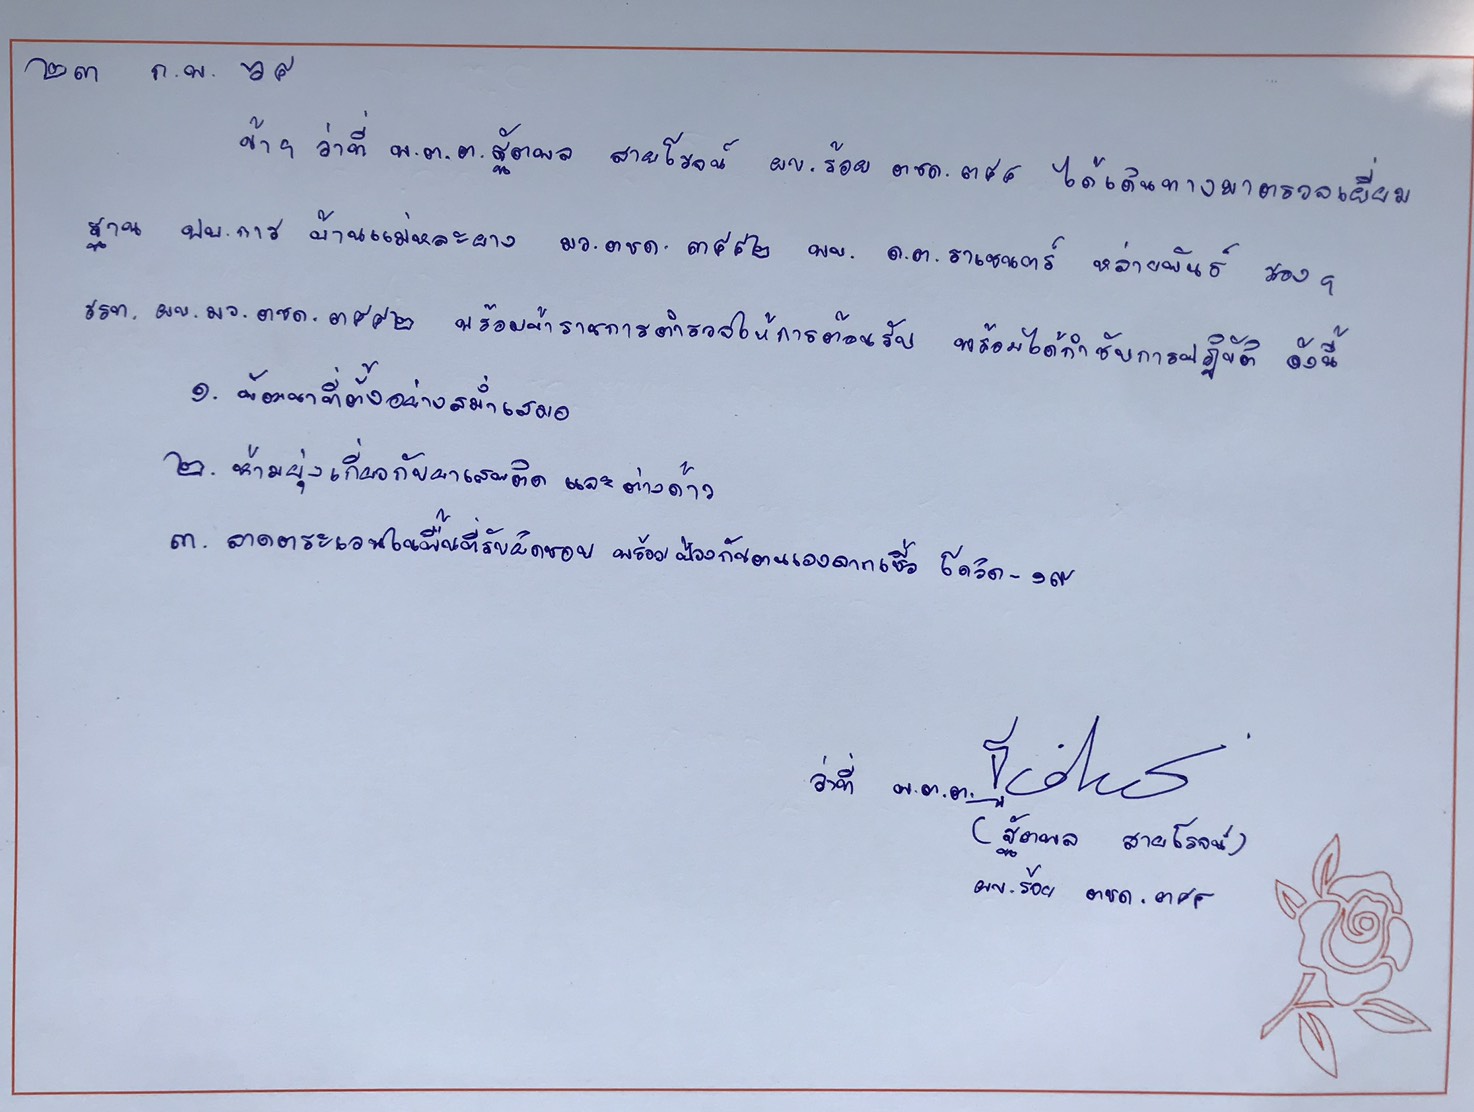 ๒๓ ก.พ. ๖๕
ข้าฯ ว่าที่ พ.ต.ต.ฐัตพล สายโรจน์ ผบ.ร้อย ตชด.๓๔๔ ได้เดินทางมาตรวจเยี่ยม
ฐาน ปบ.การ บ้านแม่หละยาง มว.ตชด.๓๔๔๒ พบ ด.ต.ราเชนทร์ หล่ายพันธ์ รองฯ
รรท. ผบ.มว.ตชด.๓๔๔๒ พร้อมข้าราชการตำรวจให้การต้อนรับ พร้อมได้กำชับการปฏิบัติ ดังนี้
๑. พัฒนาที่ตั้งอย่างสม่ำเสมอ
๒. ห้ามยุ่งเกี่ยวกับยาเสพติด และต่างด้าว
๓. ลาดตระเวนในพื้นที่รับผิดชอบ พร้อมป้องกันตนเองจากเชื้อ โควิด-๑๙
ว่าที่ พ.ต.ต.
(ฐัตพล สายโรจน์)
ผบ.ร้อย ตชด.๓๔๔